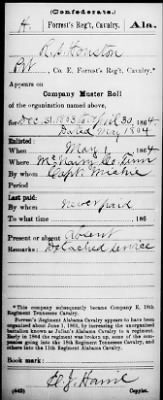 (Confederate.)
H. Forrest's Reg't, Cavalry. Ala.
R. S. Houston
Pvt, Co. E, Forrest's Reg't, Cavalry.*
Appears on
Company Muster Roll
of the organization named above,
for Dec 31, 1863 to Apl 30, 1864.
Dated May 1864
Enlisted:
When May 1, 1864
Where McNairy Co Tenn
By whom Capt. Michie
Period
Last paid:
By whom never paid
To what time , 186
Present or absent Absent
Remarks: Detached Service
*This company subsequently became Company E, 18th
Regiment Tennessee Cavalry.
Forrest's Regiment Alabama Cavalry appears to have
been organized about June 1, 1863, by increasing the unorganized
battalion known as Julian's Alabama Cavalry to a regiment.
Early in 1864 the regiment was broken up, some of the com-
panies going into the 18th Regiment Tennessee Cavalry, and
others into the 11th Regiment Alabama Cavalry.
Book mark:
(642) Copyist.